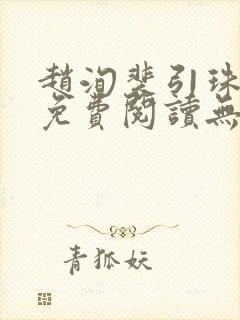 趙洵裴引珠
免費閱讀無
青狐妖